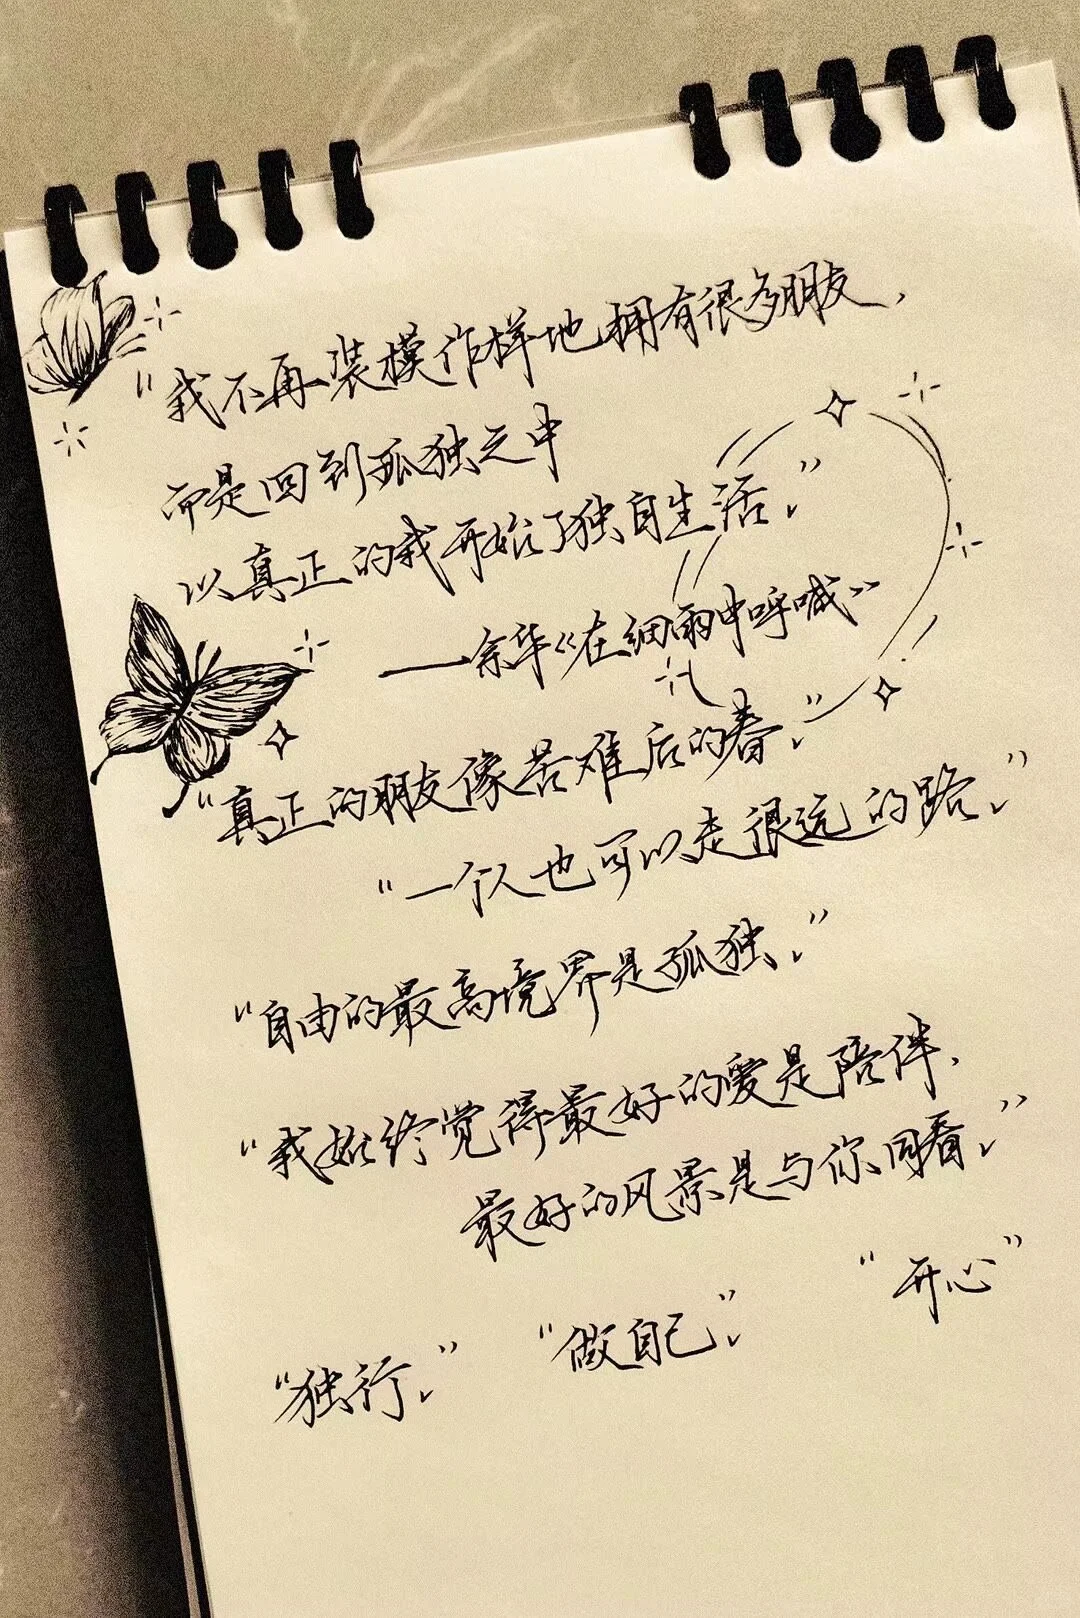 “我不再装模作样地拥有很多朋友，
而是回到孤独之中
以真正的我开始了独自生活。”
——余华《在细雨中呼喊》
“真正的朋友像苦难后的春。”
“一个人也可以走很远的路。”
“自由的最高境界是孤独。”
“我始终觉得最好的爱是陪伴，
最好的风景是与你同看。”
“独行。” “做自己。” “开心”